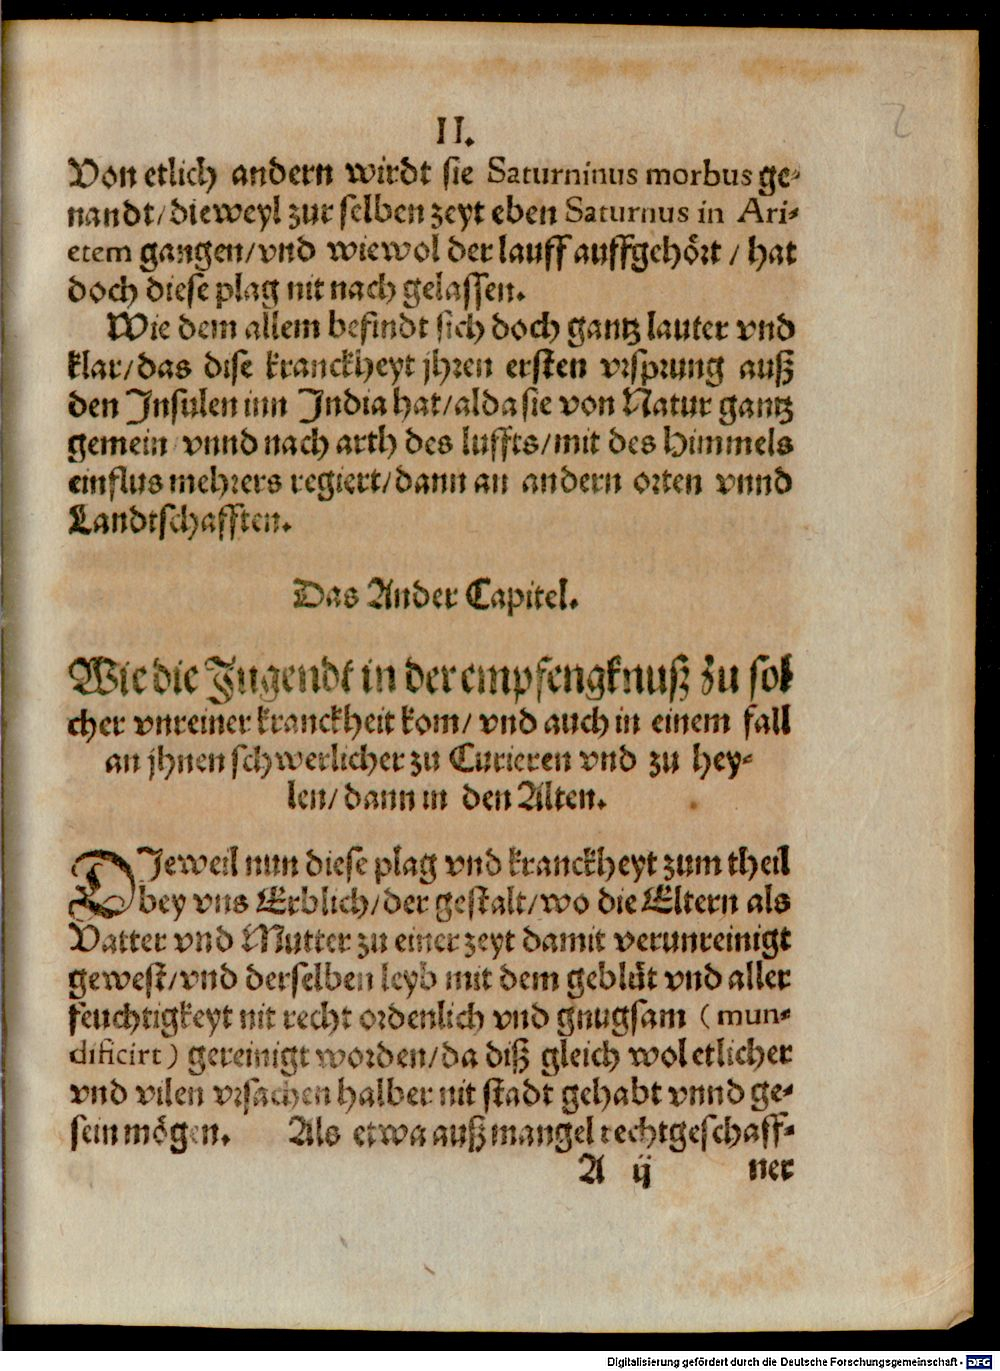 II.
2
Von etlich andern wirdt sie Saturninus morbus ge-
nandt/dieweyl zur selben zeyt eben Saturnus in Ari-
etem gangen/vnd wiewol der lauff auffgehört / hat
doch diese plag nit nach gelassen.
Wie dem allem befindt sich doch gantz lauter vnd
klar/das dise kranckheyt jhren ersten vrsprung auß
den Insulen inn India hat/alda sie von Natur gantz
gemein vnnd nach arth des luffts/mit des Himmels
einflus mehrers regiert/dann an andern orten vnnd
Landtschafften.
Das Ander Capitel.
Wie die Jugendt in der empfengknuß zu sol
cher vnreiner kranckheit kom/ vnd auch in einem fall
an jhnen schwerlicher zu Curieren vnd zu hey-
len/dann in den Alten.
DIeweil nun diese plag vnd kranckheyt zum theil
bey vns Erblich/der gestalt/wo die Eltern als
Vatter vnd Mutter zu einer zeyt damit verunreinigt
gewest/vnd derselben leyb mit dem geblüt vnd aller
feuchtigkeyt nit recht ordenlich vnd gnugsam (mun-
dificirt) gereinigt worden/da diß gleich wol etlicher
vnd vilen vrsachen halber nit stadt gehabt vnnd ge-
sein mögen. Als etwa auß mangel rechtgeschaff-
A ij ner
Digitalisierung gefördert durch die Deutsche Forschungsgemeinschaft - DFG